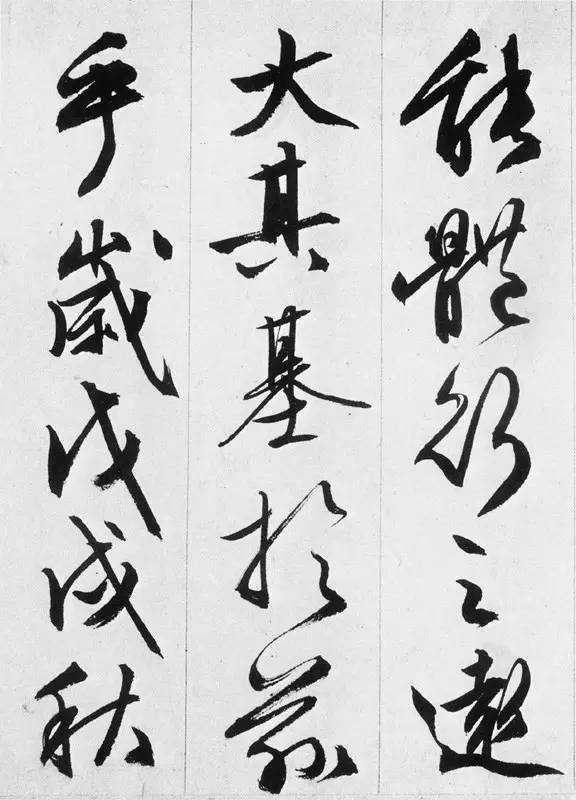 能體行之遠
大其基於茲
乎歲戊戌秋